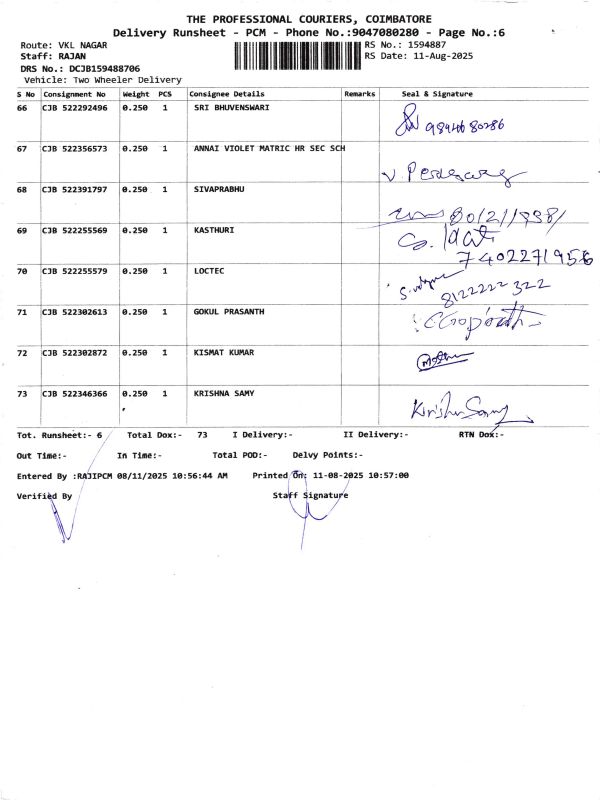 THE PROFESSIONAL COURIERS, COIMBATORE
Delivery Runsheet - PCM - Phone No.:9047080280 - Page No.:6
Route: VKL NAGAR RS No.: 1594887
Staff: RAJAN RS Date: 11-Aug-2025
DRS No.: DCJB159488706
Vehicle: Two Wheeler Delivery
S No Consignment No Weight PCS Consignee Details Remarks Seal & Signature
66 CJB 522292496 0.250 1 SRI BHUVENSWARI
67 CJB 522356573 0.250 1 ANNAI VIOLET MATRIC HR SEC SCH
68 CJB 522391797 0.250 1 SIVAPRABHU
69 CJB 522255569 0.250 1 KASTHURI
7402271956
70 CJB 522255579 0.250 1 LOCTEC
8122222322
71 CJB 522302613 0.250 1 GOKUL PRASANTH
72 CJB 522302872 0.250 1 KISMAT KUMAR
73 CJB 522346366 0.250 1 KRISHNA SAMY
Tot. Runsheet:- 6 Total Dox:- 73 I Delivery:- II Delivery:- RTN Dox:-
Out Time:- In Time:- Total POD:- Delvy Points:-
Entered By :RAJIPCM 08/11/2025 10:56:44 AM Printed On: 11-08-2025 10:57:00
Verified By Staff Signature